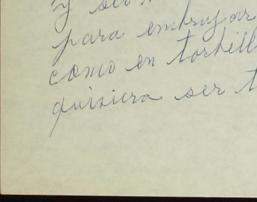 y ser
para embrujar
como en tortill
quisiera ser t